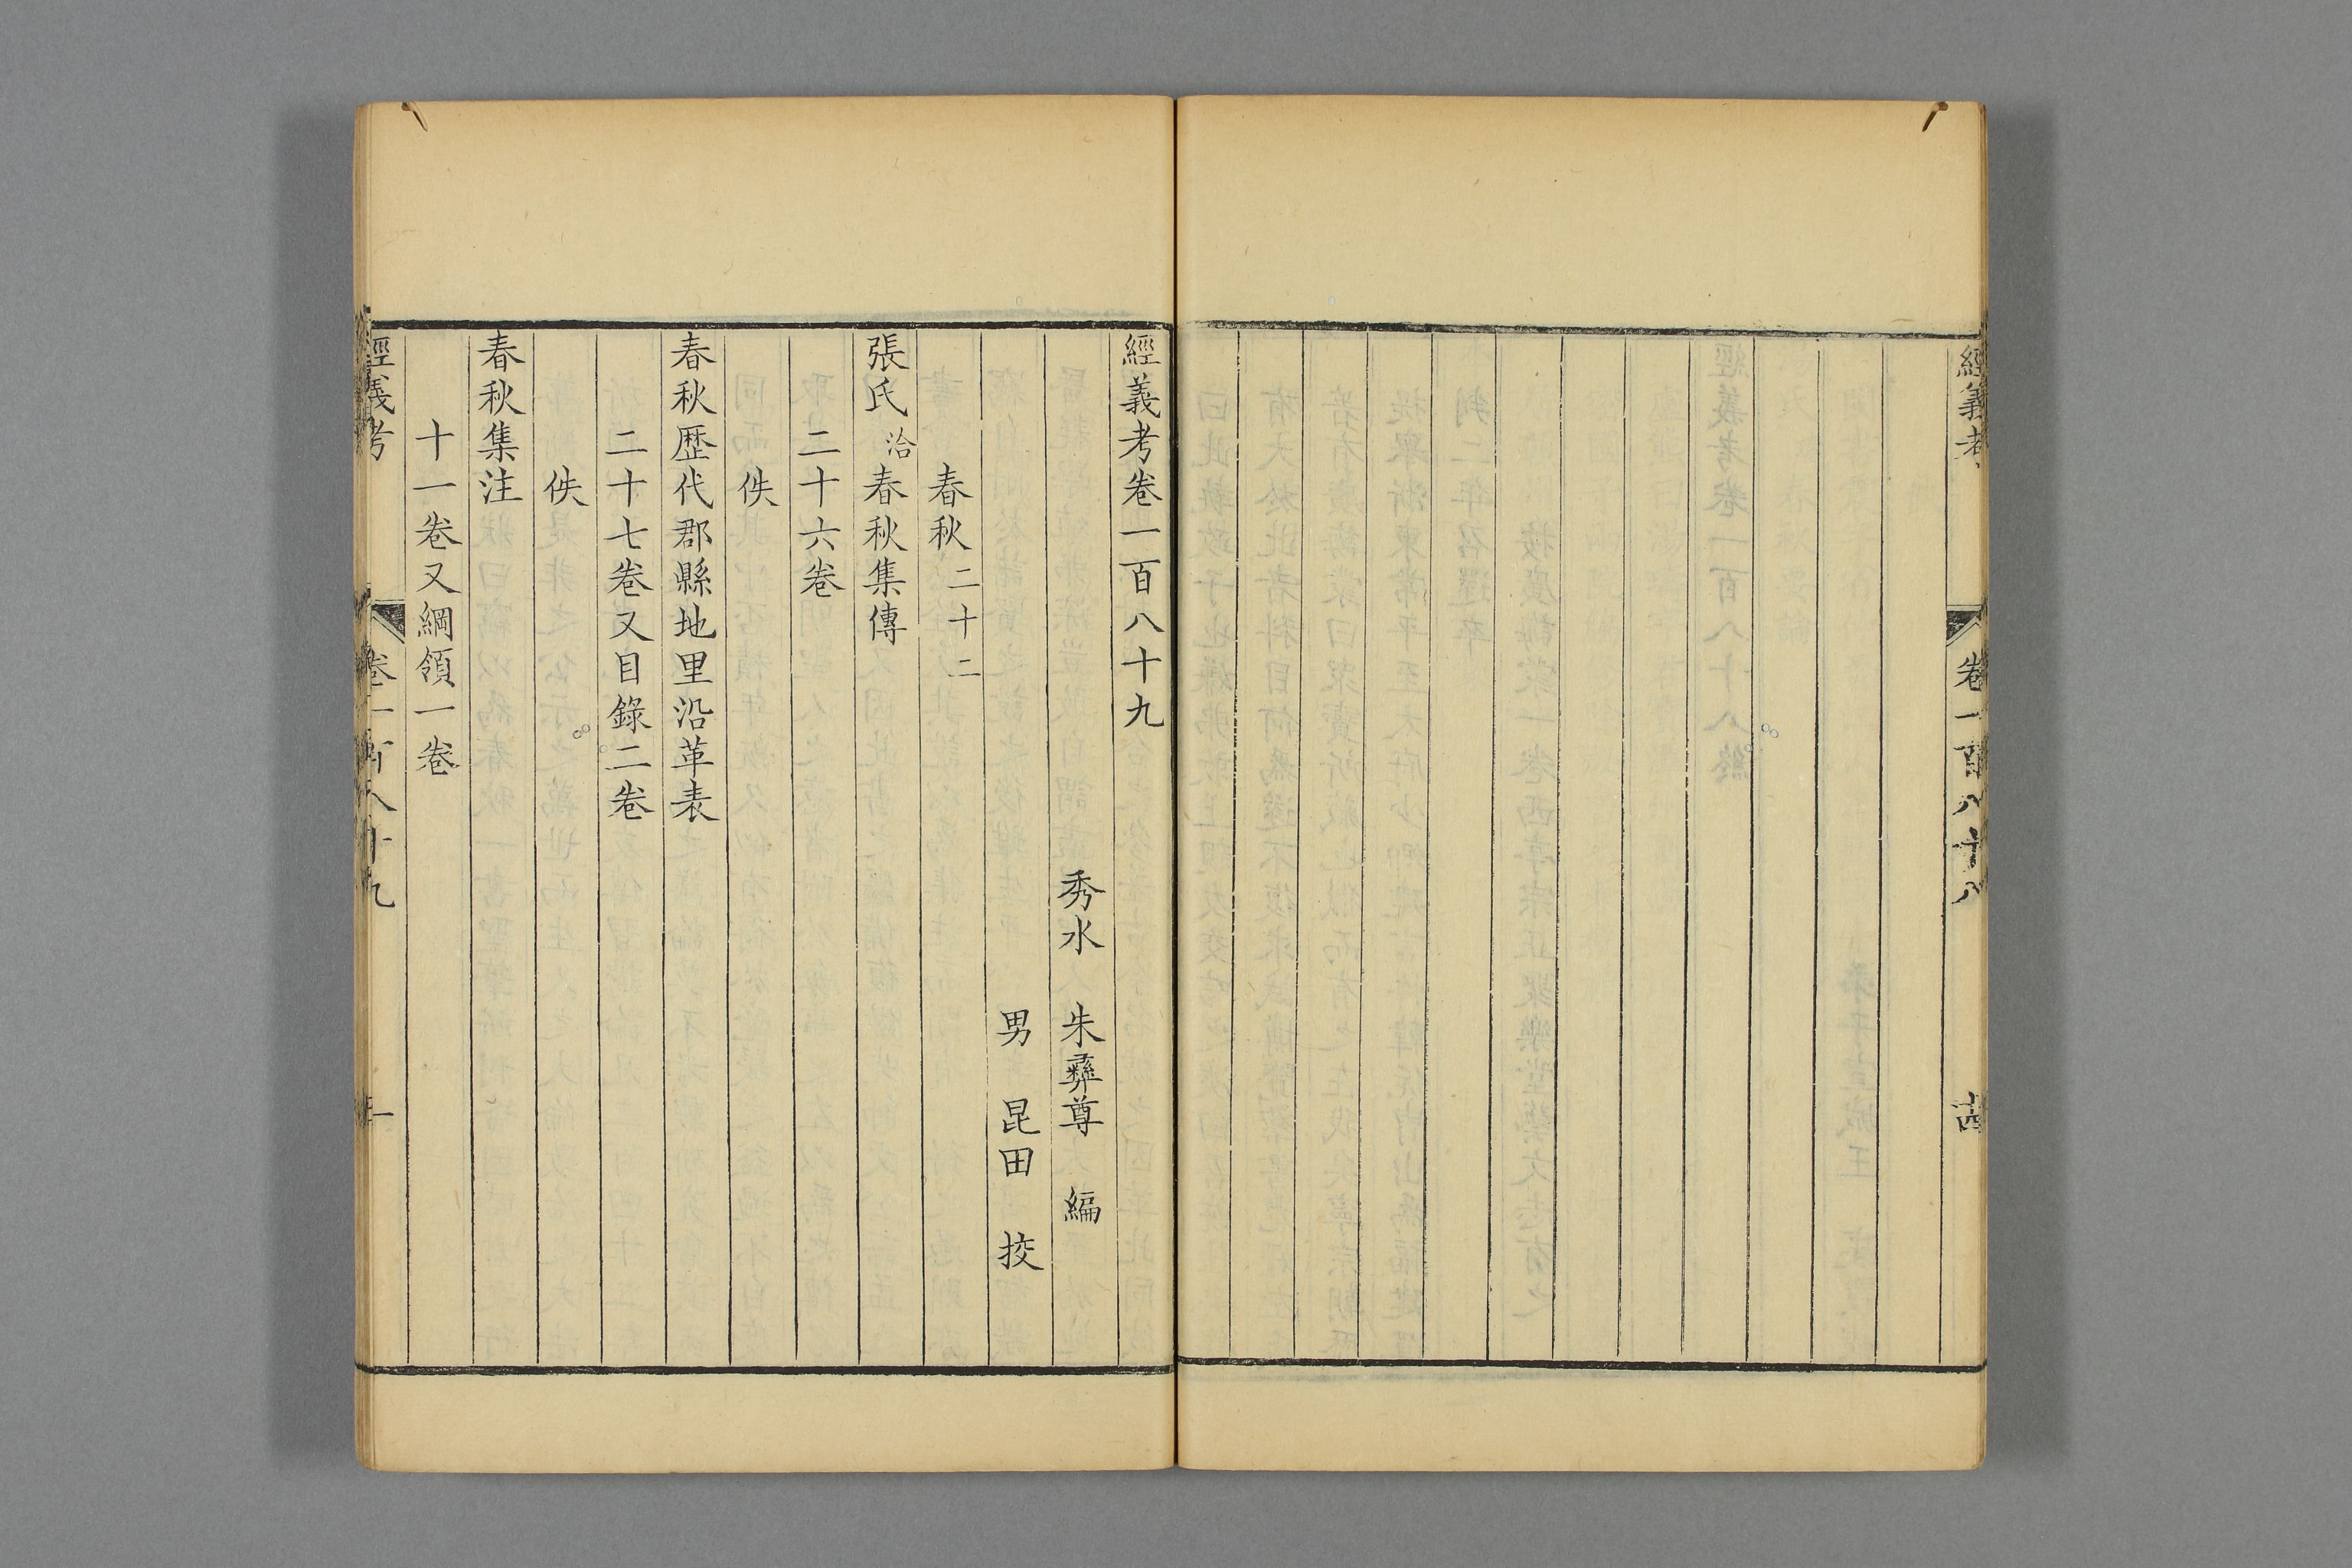 經義考
卷一百八十八
十四
經義考卷一百八十九
秀水 朱彞尊 編
男 昆田 挍
春秋二十二
張氏洽春秋集傳
二十六卷
佚
春秋歴代郡縣地里沿革表
二十七卷又目錄二卷
佚
春秋集注
十一卷又綱領一卷
經義考
卷一百八十九
一